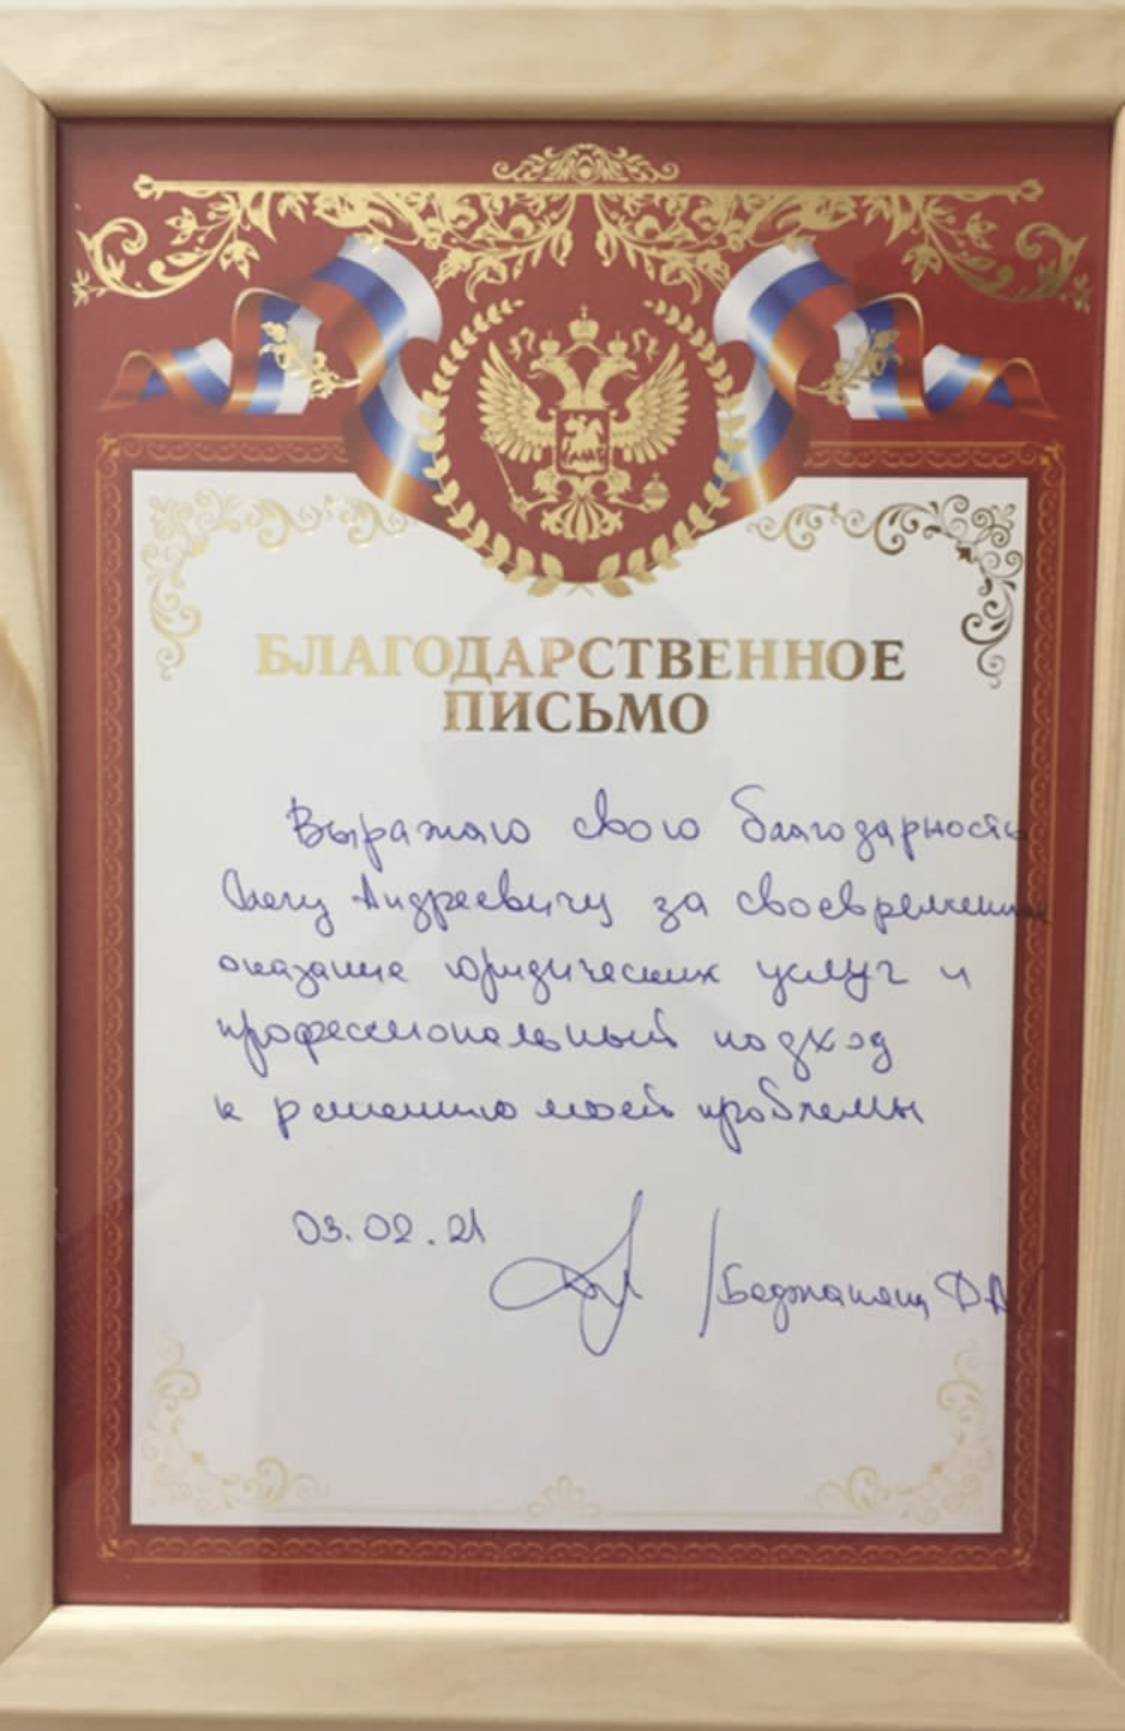 БЛАГОДАРСТВЕННОЕ
ПИСЬМО
Выражаю свою благодарность
Олегу Андреевичу за своевременное
оказание юридических услуг и
профессиональный подход
к решению моей проблемы
03.02.21
/Беджанянц Д А